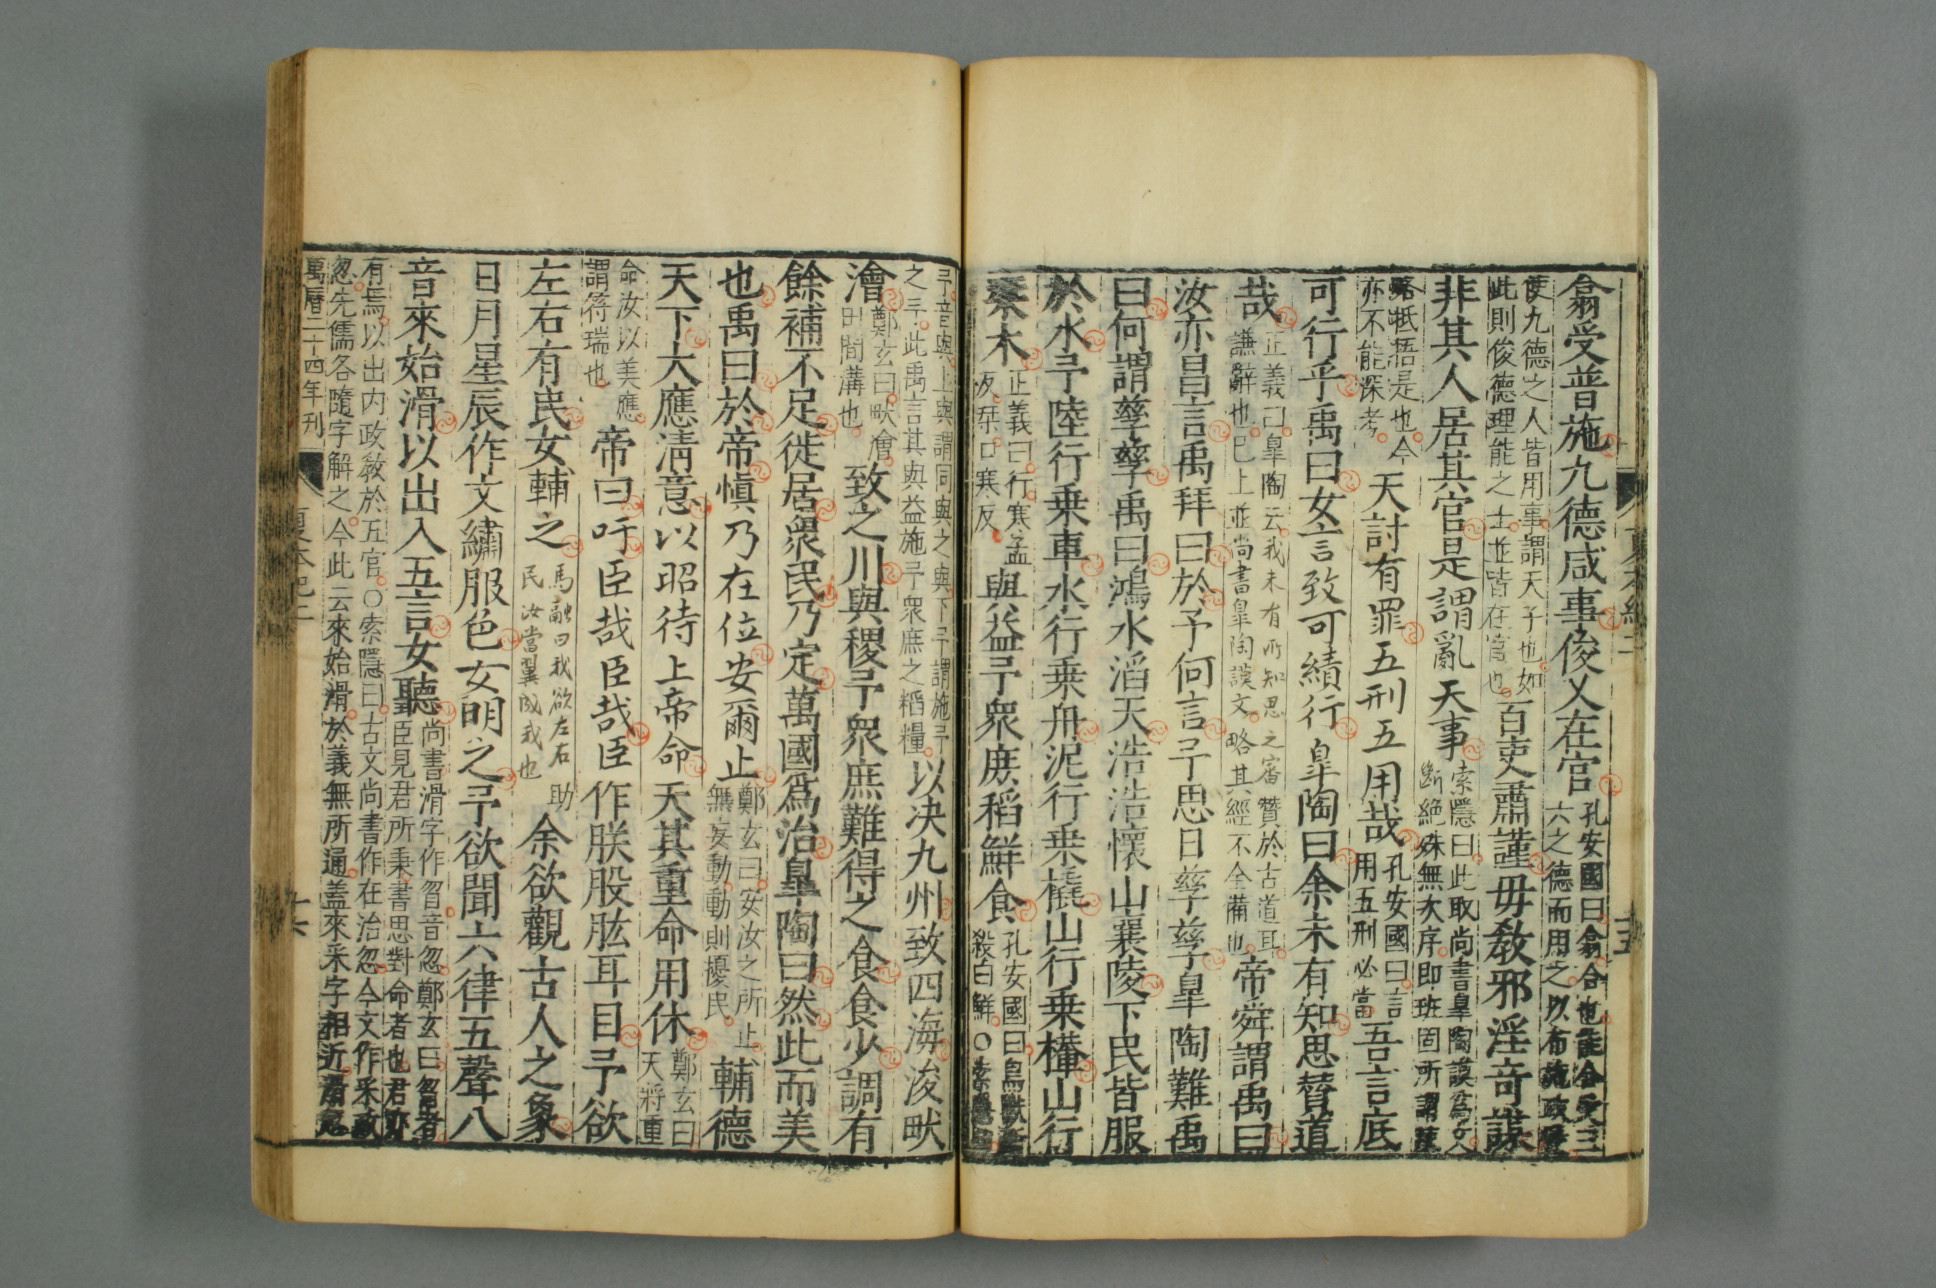 夏本紀二 十五
翕受普施九德咸事俊乂在官孔安國曰翕合也能合受三六之德而用之以布施政敎
使九德之人皆用事謂天子也如此則俊德理能之士並皆在官也百吏肅謹毋敎邪淫奇謀
非其人居其官是謂亂天事索隱曰此取尚書臯陶謨爲文斷絶殊無次序即班固所謂疎
略牴捂是也今亦不能深考天討有罪五刑五用哉孔安國曰言用五刑必當吾言底
可行乎禹曰女言致可績行臯陶曰余未有知思贊道
哉正義曰臯陶云我未有所知思之審贊於古道耳謙辭也已上並尚書臯陶謨文略其經不全備也帝舜謂禹曰
汝亦昌言禹拜曰於予何言予思日孳孳臯陶難禹
曰何謂孳孳禹曰鴻水滔天浩浩懷山襄陵下民皆服
於水予陸行乗車水行乗舟泥行乗橇山行乗檋山行
栞木正義曰行寒孟反栞口寒反與益予衆庶稻鮮食孔安國曰鳥獸新殺曰鮮○索隱曰
予音與上與謂同與之與下予謂施予之予此禹言其與益施予衆庶之稻糧以决九州致四海浚畎
澮鄭玄曰畎澮田間溝也致之川與稷予衆庶難得之食食少調有
餘補不足徙居衆民乃定萬國爲治臯陶曰然此而美
也禹曰於帝慎乃在位安爾止鄭玄曰安汝之所止無妄動動則擾民輔德
天下大應清意以昭待上帝命天其重命用休鄭玄曰天將重
命汝以美應謂符瑞也帝曰吁臣哉臣哉臣作朕股肱耳目予欲
左右有民女輔之馬融曰我欲左右助民汝當翼成我也余欲觀古人之象
日月星辰作文繡服色女明之予欲聞六律五聲八
音來始滑以出入五言女聽尚書滑字作曶音忽鄭玄曰曶者臣見君所秉書思對命者也君亦
有焉以出内政敎於五官○索隱曰古文尚書作在治忽今文作采政忽先儒各隨字解之今此云來始滑於義無所通盖來采字相近滑忽
萬曆二十四年刊 夏本紀二 十六